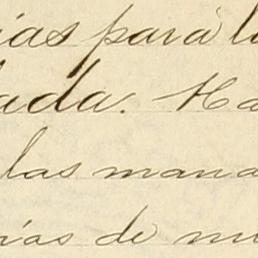 ias para l
ada. Ha
las mana
ias de mu